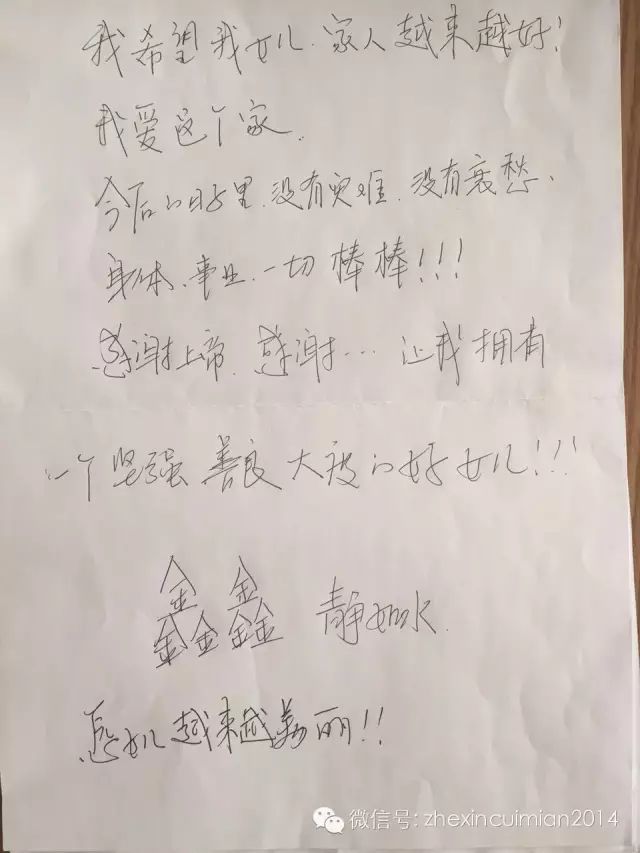 我希望我女儿.家人越来越好!
我爱这个家.
今后的日子里.没有灾难.没有哀愁、
身体、事业.一切棒棒!!!
感谢上帝.感谢...让我拥有
一个坚强善良大度的好女儿!!!
鑫鑫 静如水.
愿女儿越来越美丽!!
微信号: zhexincuimian2014